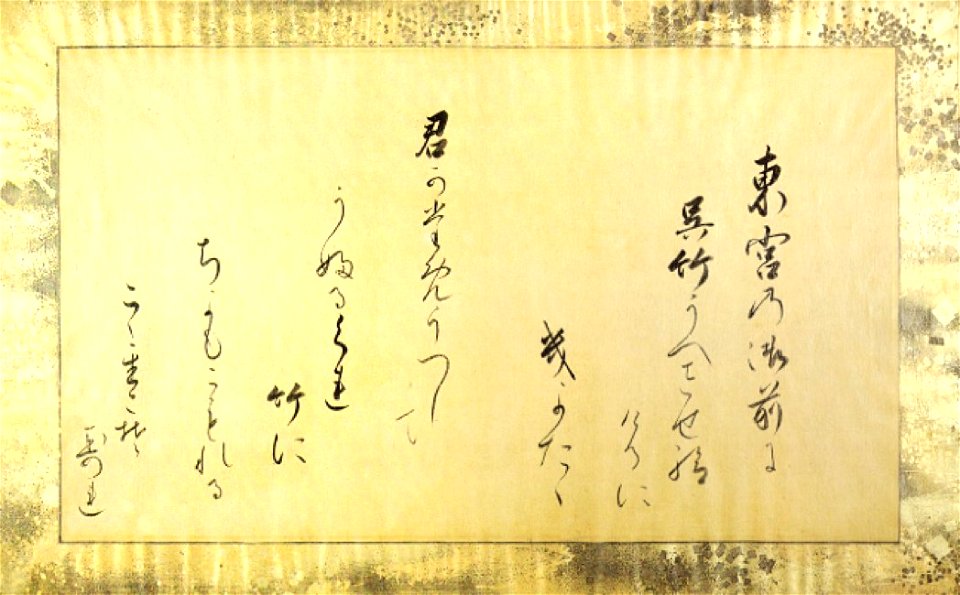 東宮の御前に
呉竹うへさせ給
けるに
きよたゝ
君かためうつして
うふるくれ
竹に
ちよもこもれる
こゝちこそ
すれ